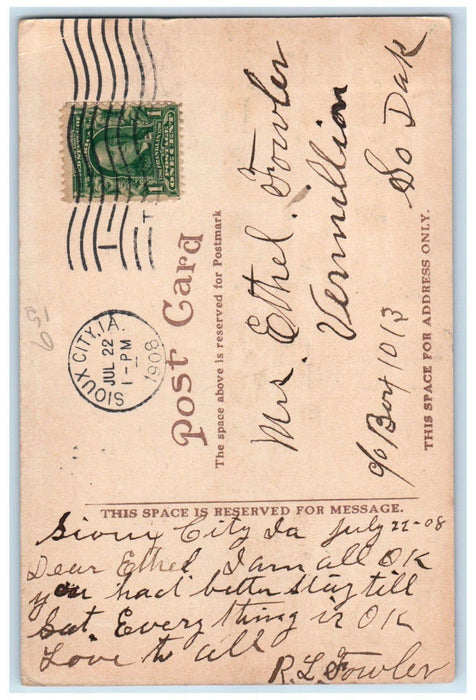 Post Card
The space above is reserved for Postmark
SIOUX CITY, IA.
JUL 22
1-PM
1908
1
ONE CENT
Mrs. Ethel. Fowler
Vermillion
So Dak
c/o Box 1013
THIS SPACE FOR ADDRESS ONLY.
THIS SPACE IS RESERVED FOR MESSAGE.
Sioux City Ia July 22-08
Dear Ethel I am all OK
you had better stay till
Sat. Every thing is OK
Love to all
R. L. Fowler